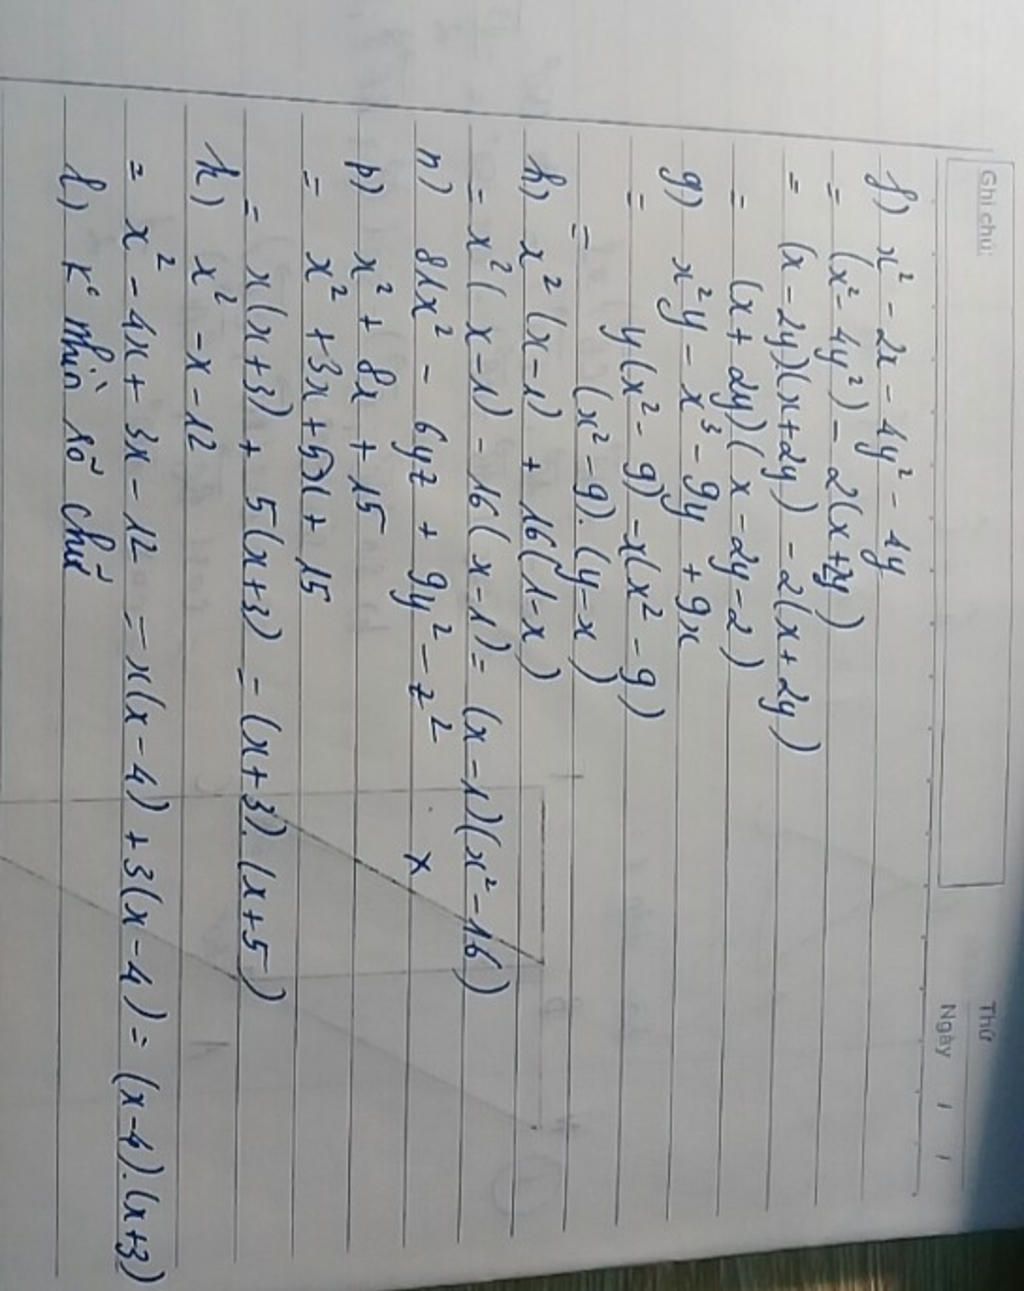 Ghi chú:
Thứ
Ngày / /
f) x² - 2x - 4y² - 4y
= (x² - 4y²) - 2(x + 2y)
= (x - 2y)(x + 2y) - 2(x + 2y)
= (x + 2y)(x - 2y - 2)
g) x²y - x³ - 9y + 9x
= y(x² - 9) - x(x² - 9)
= (x² - 9).(y - x)
h) x²(x - 1) + 16(1 - x)
= x²(x - 1) - 16(x - 1) = (x - 1)(x² - 16)
n) 81x² - 6yz + 9y² - z² x
p) x² + 8x + 15
= x² + 3x + 5x + 15
= x(x + 3) + 5(x + 3) = (x + 3).(x + 5)
k) x² - x - 12
= x² - 4x + 3x - 12 = x(x - 4) + 3(x - 4) = (x - 4).(x + 3)
l) K° nhìn rõ chữ